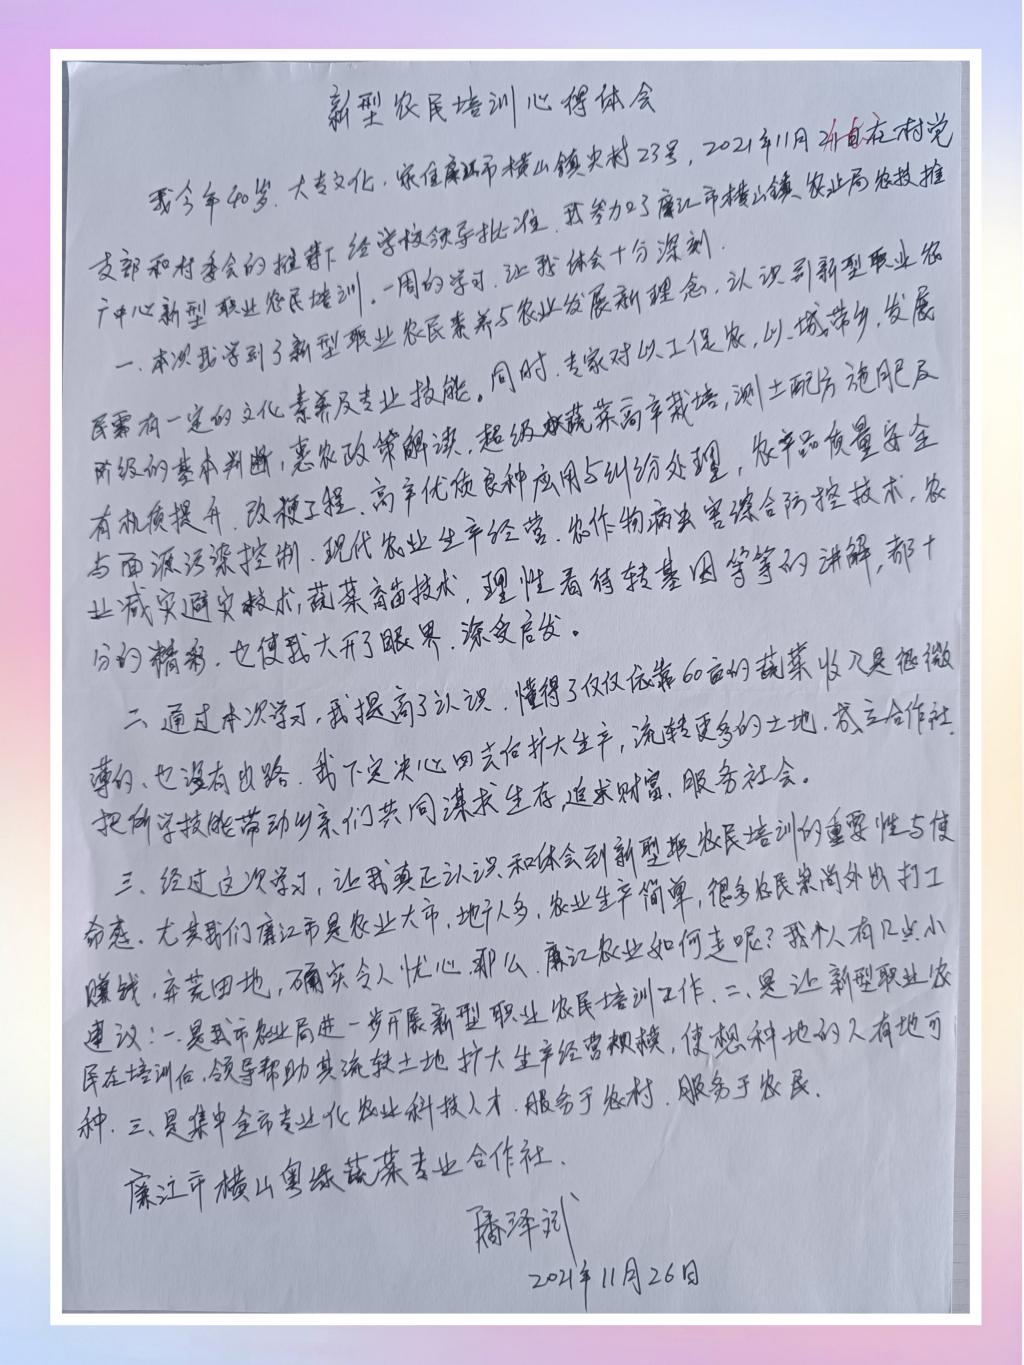 新型农民培训心得体会
我今年40岁，大专文化，家住廉江市横山镇央村23号，2021年11月21日在村党
支部和村委会的推荐下经学校领导批准，我参加了廉江市横山镇农业局农技推
广中心新型职业农民培训。一周的学习，让我体会十分深刻。
一、本次我学到了新型职业农民素养与农业发展新理念，认识到新型职业农
民需有一定的文化素养及专业技能。同时，专家对以工促农，以城带乡，发展
阶级的基本判断，惠农政策解读，超级蔬菜高产栽培，测土配方施肥及
有机质提升、改梗工程、高产优质良种应用与纠纷处理，农产品质量安全
与面源污染控制、现代农业生产经营、农作物病虫害综合防控技术，农
业减灾避灾技术，蔬菜育苗技术，理性看待转基因等等的讲解，都十
分的精彩，也使我大开了眼界，深受启发。
二、通过本次学习，我提高了认识，懂得了仅仅依靠60亩的蔬菜收入是很微
薄的、也没有出路，我下定决心回去后扩大生产，流转更多的土地，成立合作社，
把所学技能带动乡亲们共同谋求生存，追求财富、服务社会。
三、经过这次学习，让我真正认识和体会到新型职农民培训的重要性与使
命感，尤其我们廉江市是农业大市，地广人多，农业生产简单，很多农民崇尚外出打工
赚钱，弃荒田地，确实令人忧心，那么，廉江农业如何走呢？我个人有几点小
建议：一是我市农业局进一步开展新型职业农民培训工作，二、是让新型职业农
民在培训后，领导帮助其流转土地扩大生产经营规模，使想种地的人有地可
种，三、是集中全市专业化农业科技人才，服务于农村，服务于农民。
廉江市横山粤绿蔬菜专业合作社。
潘泽斌
2021年11月26日